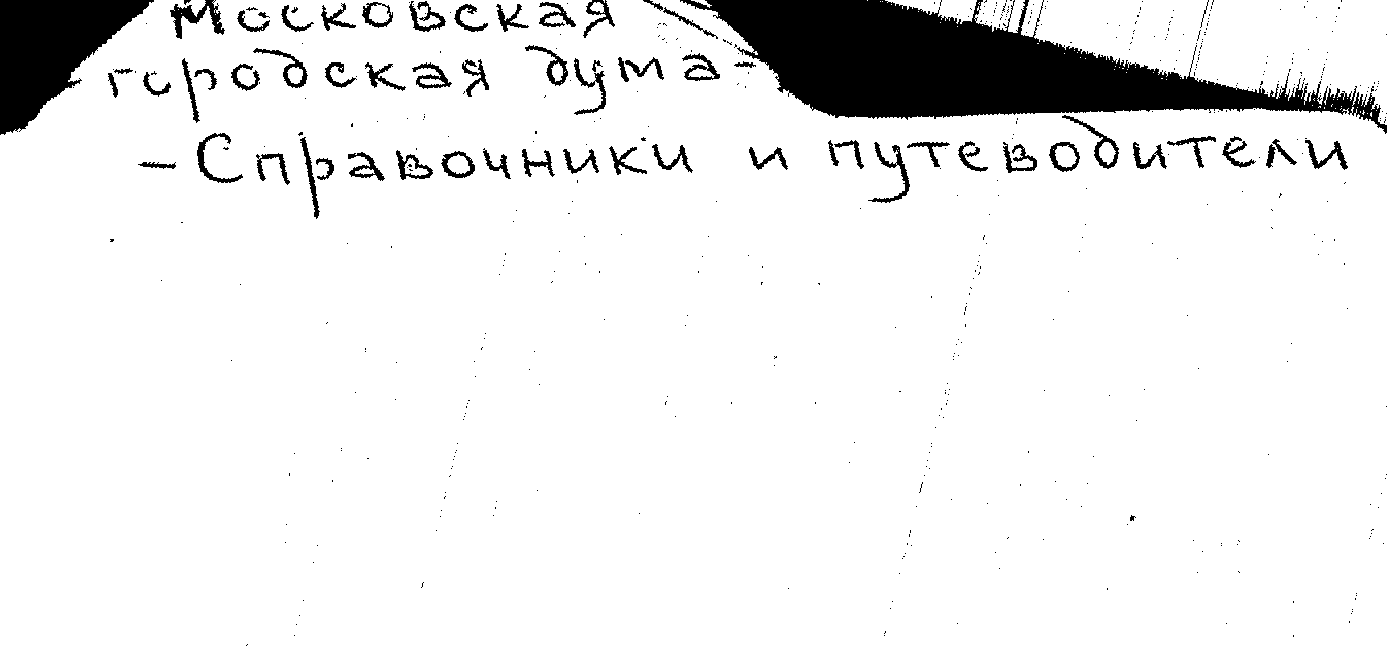 Московская
- городская дума -
- Справочники и путеводители